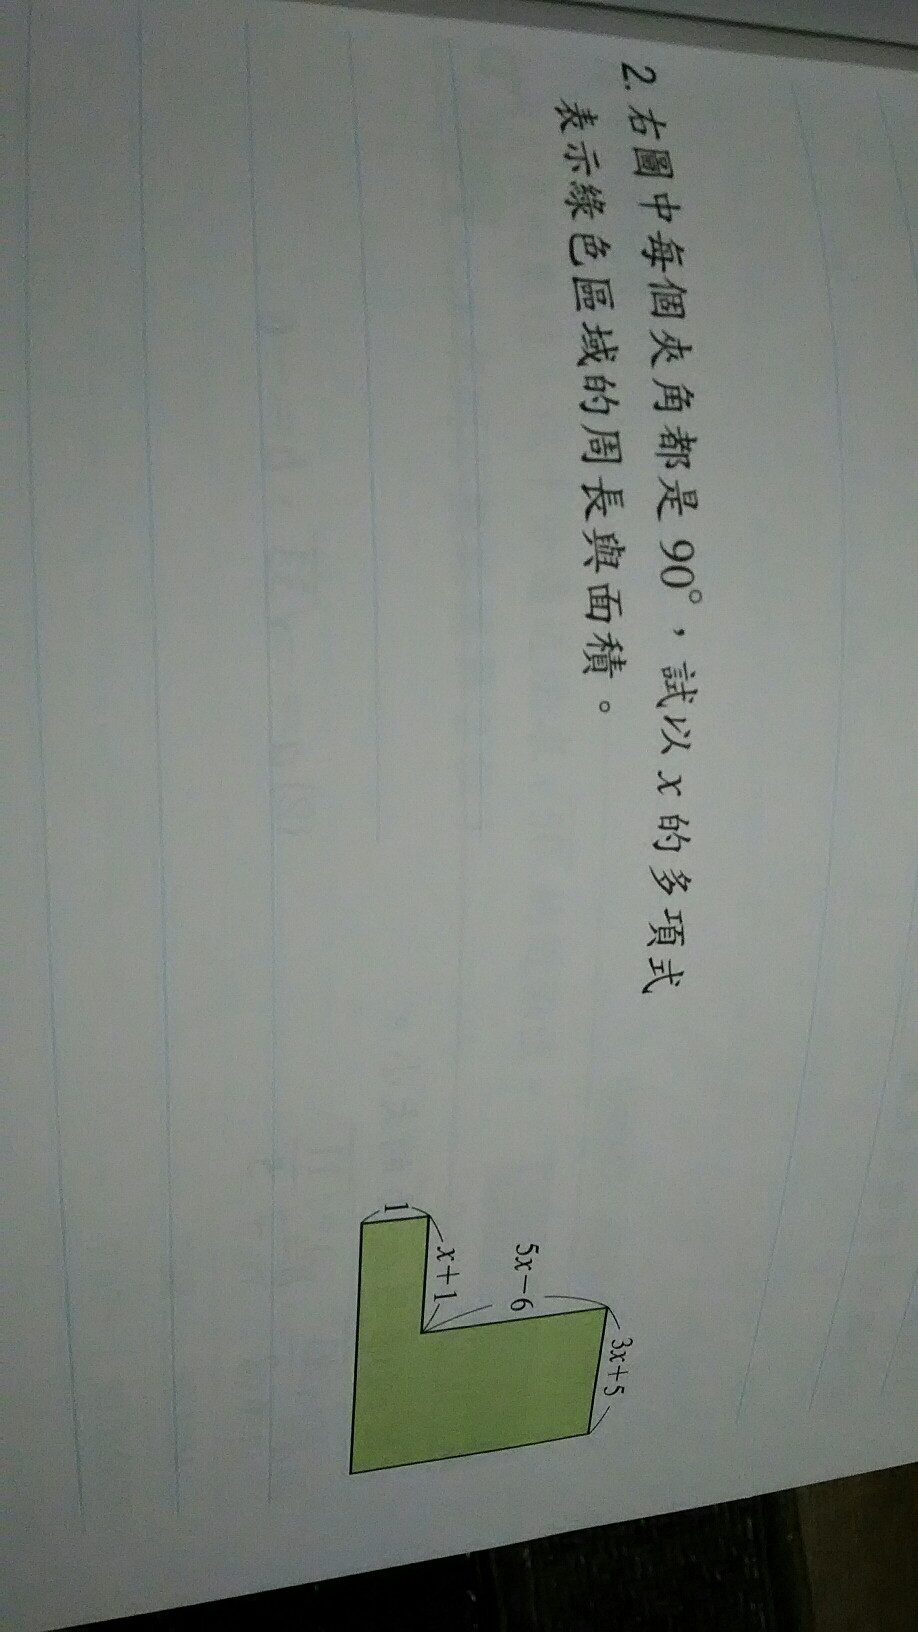 2. 右圖中每個夾角都是 90°，試以 x 的多項式
表示綠色區域的周長與面積。
3x+5
5x−6
x+1
1